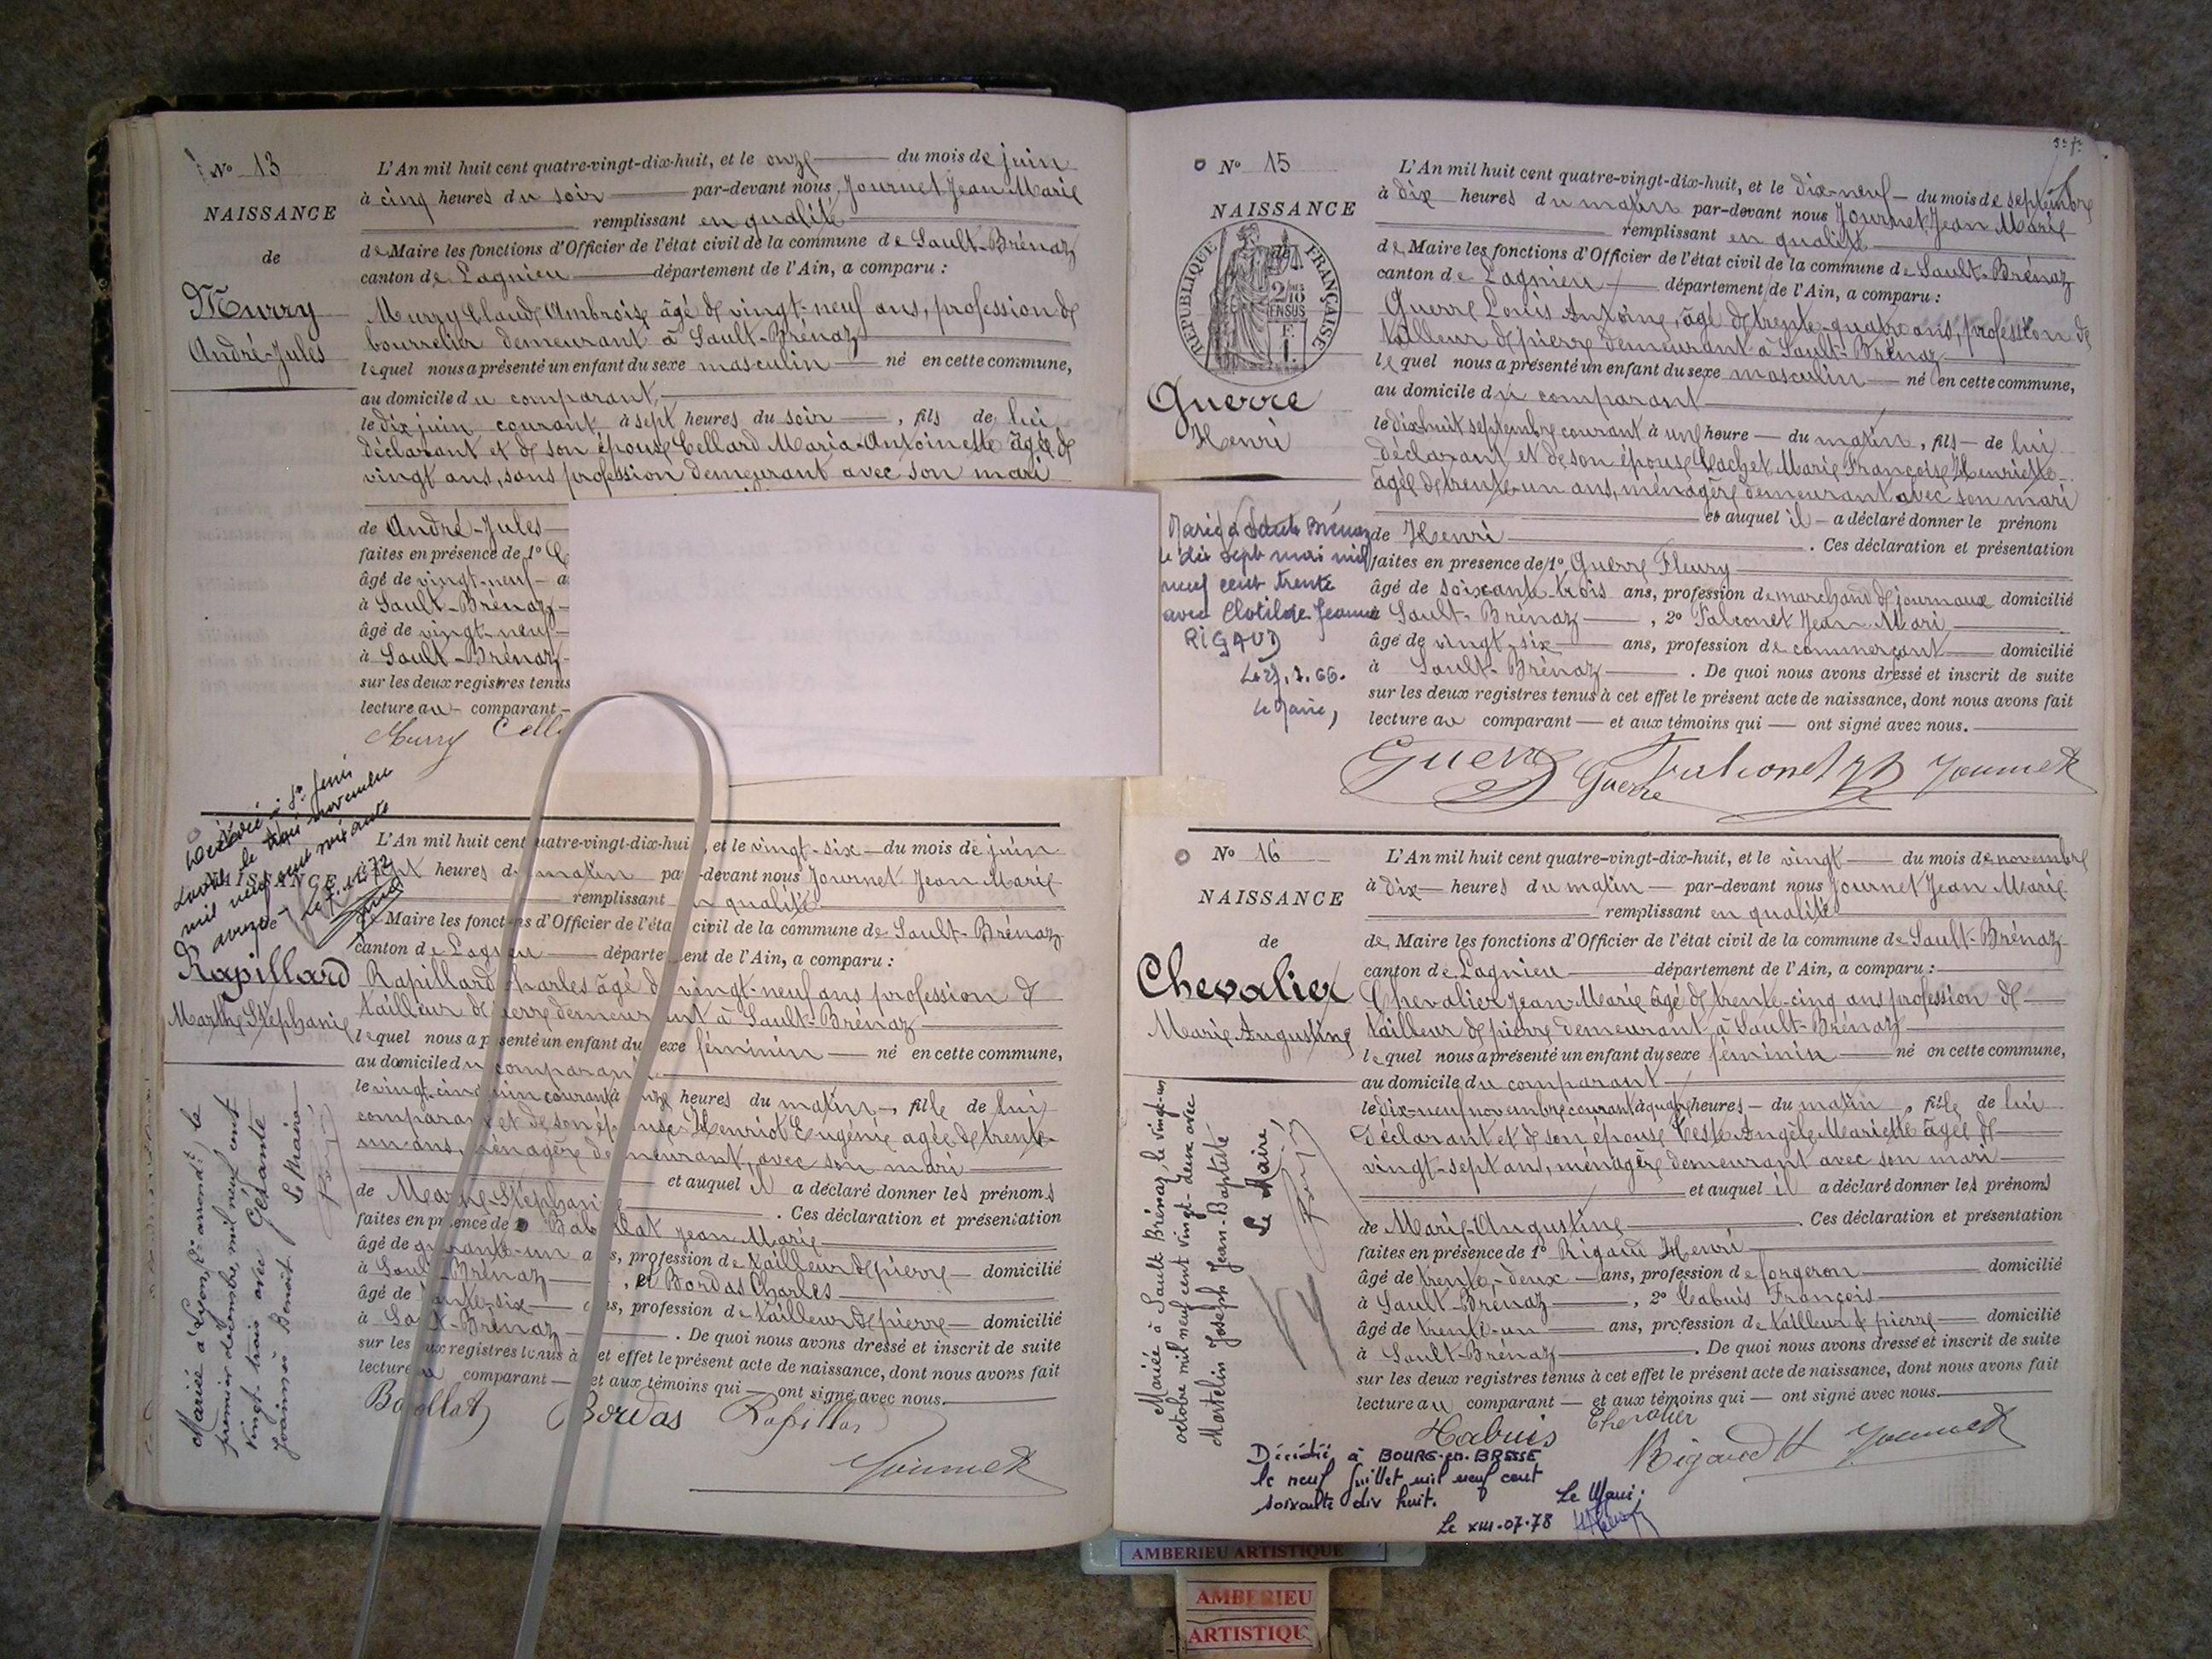 N° 13
NAISSANCE
de
Murry
André-Jules
L'An mil huit cent quatre-vingt-dix-huit, et le onze du mois de juin
à cinq heures du soir par-devant nous Journet Jean Marie
remplissant en qualité
de Maire les fonctions d'Officier de l'état civil de la commune de Sault-Brénaz
canton de Lagnieu département de l'Ain, a comparu :
Murry Claude Ambroise âgé de vingt-neuf ans, profession de
bourrelier demeurant à Sault-Brénaz
lequel nous a présenté un enfant du sexe masculin né en cette commune,
au domicile du comparant,
le dix juin courant à sept heures du soir, fils de lui
déclarant et de son épouse Cellard Maria-Antoinette âgée de
vingt ans, sans profession demeurant avec son mari
de André-Jules
faites en présence de 1° C
âgé de vingt-neuf a
à Sault-Brénaz
âgé de vingt-neuf
à Sault-Brénaz
sur les deux registres tenus
lecture au comparant
Murry Cell
Louis le trois novembre
mil neuf cent soixante
NAISSANCE
Rapillard
Marthe Stéphanie
L'An mil huit cent quatre-vingt-dix-hui, et le vingt-six du mois de juin
heures du matin pa-devant nous Journet Jean Marie
remplissant en qualité
de Maire les fonctions d'Officier de l'éta civil de la commune de Sault-Brénaz
canton de Lagnieu département de l'Ain, a comparu :
Rapillard Charles âgé de vingt-neuf ans profession de
tailleur de pierre demeurant à Sault-Brénaz
lequel nous a présenté un enfant du sexe féminin né en cette commune,
au domicile du comparant
le vingt-cinq juin courant à onze heures du matin, fille de lui
comparant et de son épouse Henriot Eugénie agée de trente-
un ans, ménagère demeurant avec son mari
et auquel il a déclaré donner les prénoms
de Marthe-Stéphanie. Ces déclaration et présentation
faites en présence de Babollat Jean Marie
âgé de quarante-un ans, profession de tailleur de pierre domicilié
à Sault-Brénaz, et Bordas Charles
âgé de ante-six ans, profession de tailleur de pierre domicilié
à Sault-Brénaz. De quoi nous avons dressé et inscrit de suite
sur les deux registres tenus à cet effet le présent acte de naissance, dont nous avons fait
lecture au comparant et aux témoins qui ont signé avec nous.
Bordas Rapillard
Journet
Mariée à Lyon, 2e arrondt le
premier décembre, mil neuf cent
vingt-trois avec Gésante
Joannès Benoit. Le Maire,
N° 15
NAISSANCE
RÉPUBLIQUE FRANÇAISE
2/10 EN SUS
Guerre
Henri
L'An mil huit cent quatre-vingt-dix-huit, et le dix-neuf du mois de septembre
à dix heures du matin par-devant nous Journet Jean Marie
remplissant en qualité
de Maire les fonctions d'Officier de l'état civil de la commune de Sault-Brénaz
canton de Lagnieu département de l'Ain, a comparu :
Guerre Louis Antoine, âgé de trente-quatre ans, profession de
tailleur de pierre demeurant à Sault-Brénaz
lequel nous a présenté un enfant du sexe masculin né en cette commune,
au domicile du comparant
le dix-huit septembre courant à une heure du matin, fils de lui
déclarant et de son épouse Cachet Marie Françoise Henriette
âgée de trente-un ans, ménagère demeurant avec son mari
et auquel il a déclaré donner le prénom
de Henri. Ces déclaration et présentation
faites en presence de 1° Guerre Fleury
âgé de soixante-trois ans, profession de marchand de journaux domicilié
à Sault-Brénaz, 2° Falconet Jean Mari
âgé de vingt-six ans, profession de commerçant domicilié
à Sault-Brénaz. De quoi nous avons dressé et inscrit de suite
sur les deux registres tenus à cet effet le présent acte de naissance, dont nous avons fait
lecture au comparant et aux témoins qui ont signé avec nous.
Guerre Guerre Falconet Journet
Marié à Sault Brénaz
le dix sept mai mil
neuf cent trente
avec Clotilde Jeanne
RIGAUD
Le Maire,
N° 16
NAISSANCE
de
Chevalier
Marie Augustine
L'An mil huit cent quatre-vingt-dix-huit, et le vingt du mois de novembre
à dix heures du matin par-devant nous Journet Jean Marie
remplissant en qualité
de Maire les fonctions d'Officier de l'état civil de la commune de Sault-Brénaz
canton de Lagnieu département de l'Ain, a comparu :
Chevalier Jean-Marie âgé de trente-cinq ans profession de
tailleur de pierre demeurant à Sault-Brénaz
lequel nous a présenté un enfant du sexe féminin né en cette commune,
au domicile du comparant
le dix-neuf novembre courant à quatre heures du matin, fille de lui
déclarant et de son épouse Teste Angèle Mariette âgée de
vingt-sept ans, ménagère demeurant avec son mari
et auquel il a déclaré donner les prénoms
de Marie-Augustine. Ces déclaration et présentation
faites en présence de 1° Rigaud Henri
âgé de trente-deux ans, profession de forgeron domicilié
à Sault-Brénaz, 2° Cabuis François
âgé de trente-un ans, profession de tailleur de pierre domicilié
à Sault-Brénaz. De quoi nous avons dressé et inscrit de suite
sur les deux registres tenus à cet effet le présent acte de naissance, dont nous avons fait
lecture au comparant et aux témoins qui ont signé avec nous.
Cabuis Chevalier Rigaud H Journet
Mariée à Sault Brénaz, le vingt-un
octobre mil neuf cent vingt-deux avec
Martelin Joseph Jean-Baptiste
Le Maire,
Décédée à BOURG-en-BRESSE
le neuf Juillet mil neuf cent
soixante dix huit.
Le Maire :
Le XIII-07-78
AMBERIEU ARTISTIQUE
AMBERIEU
ARTISTIQU